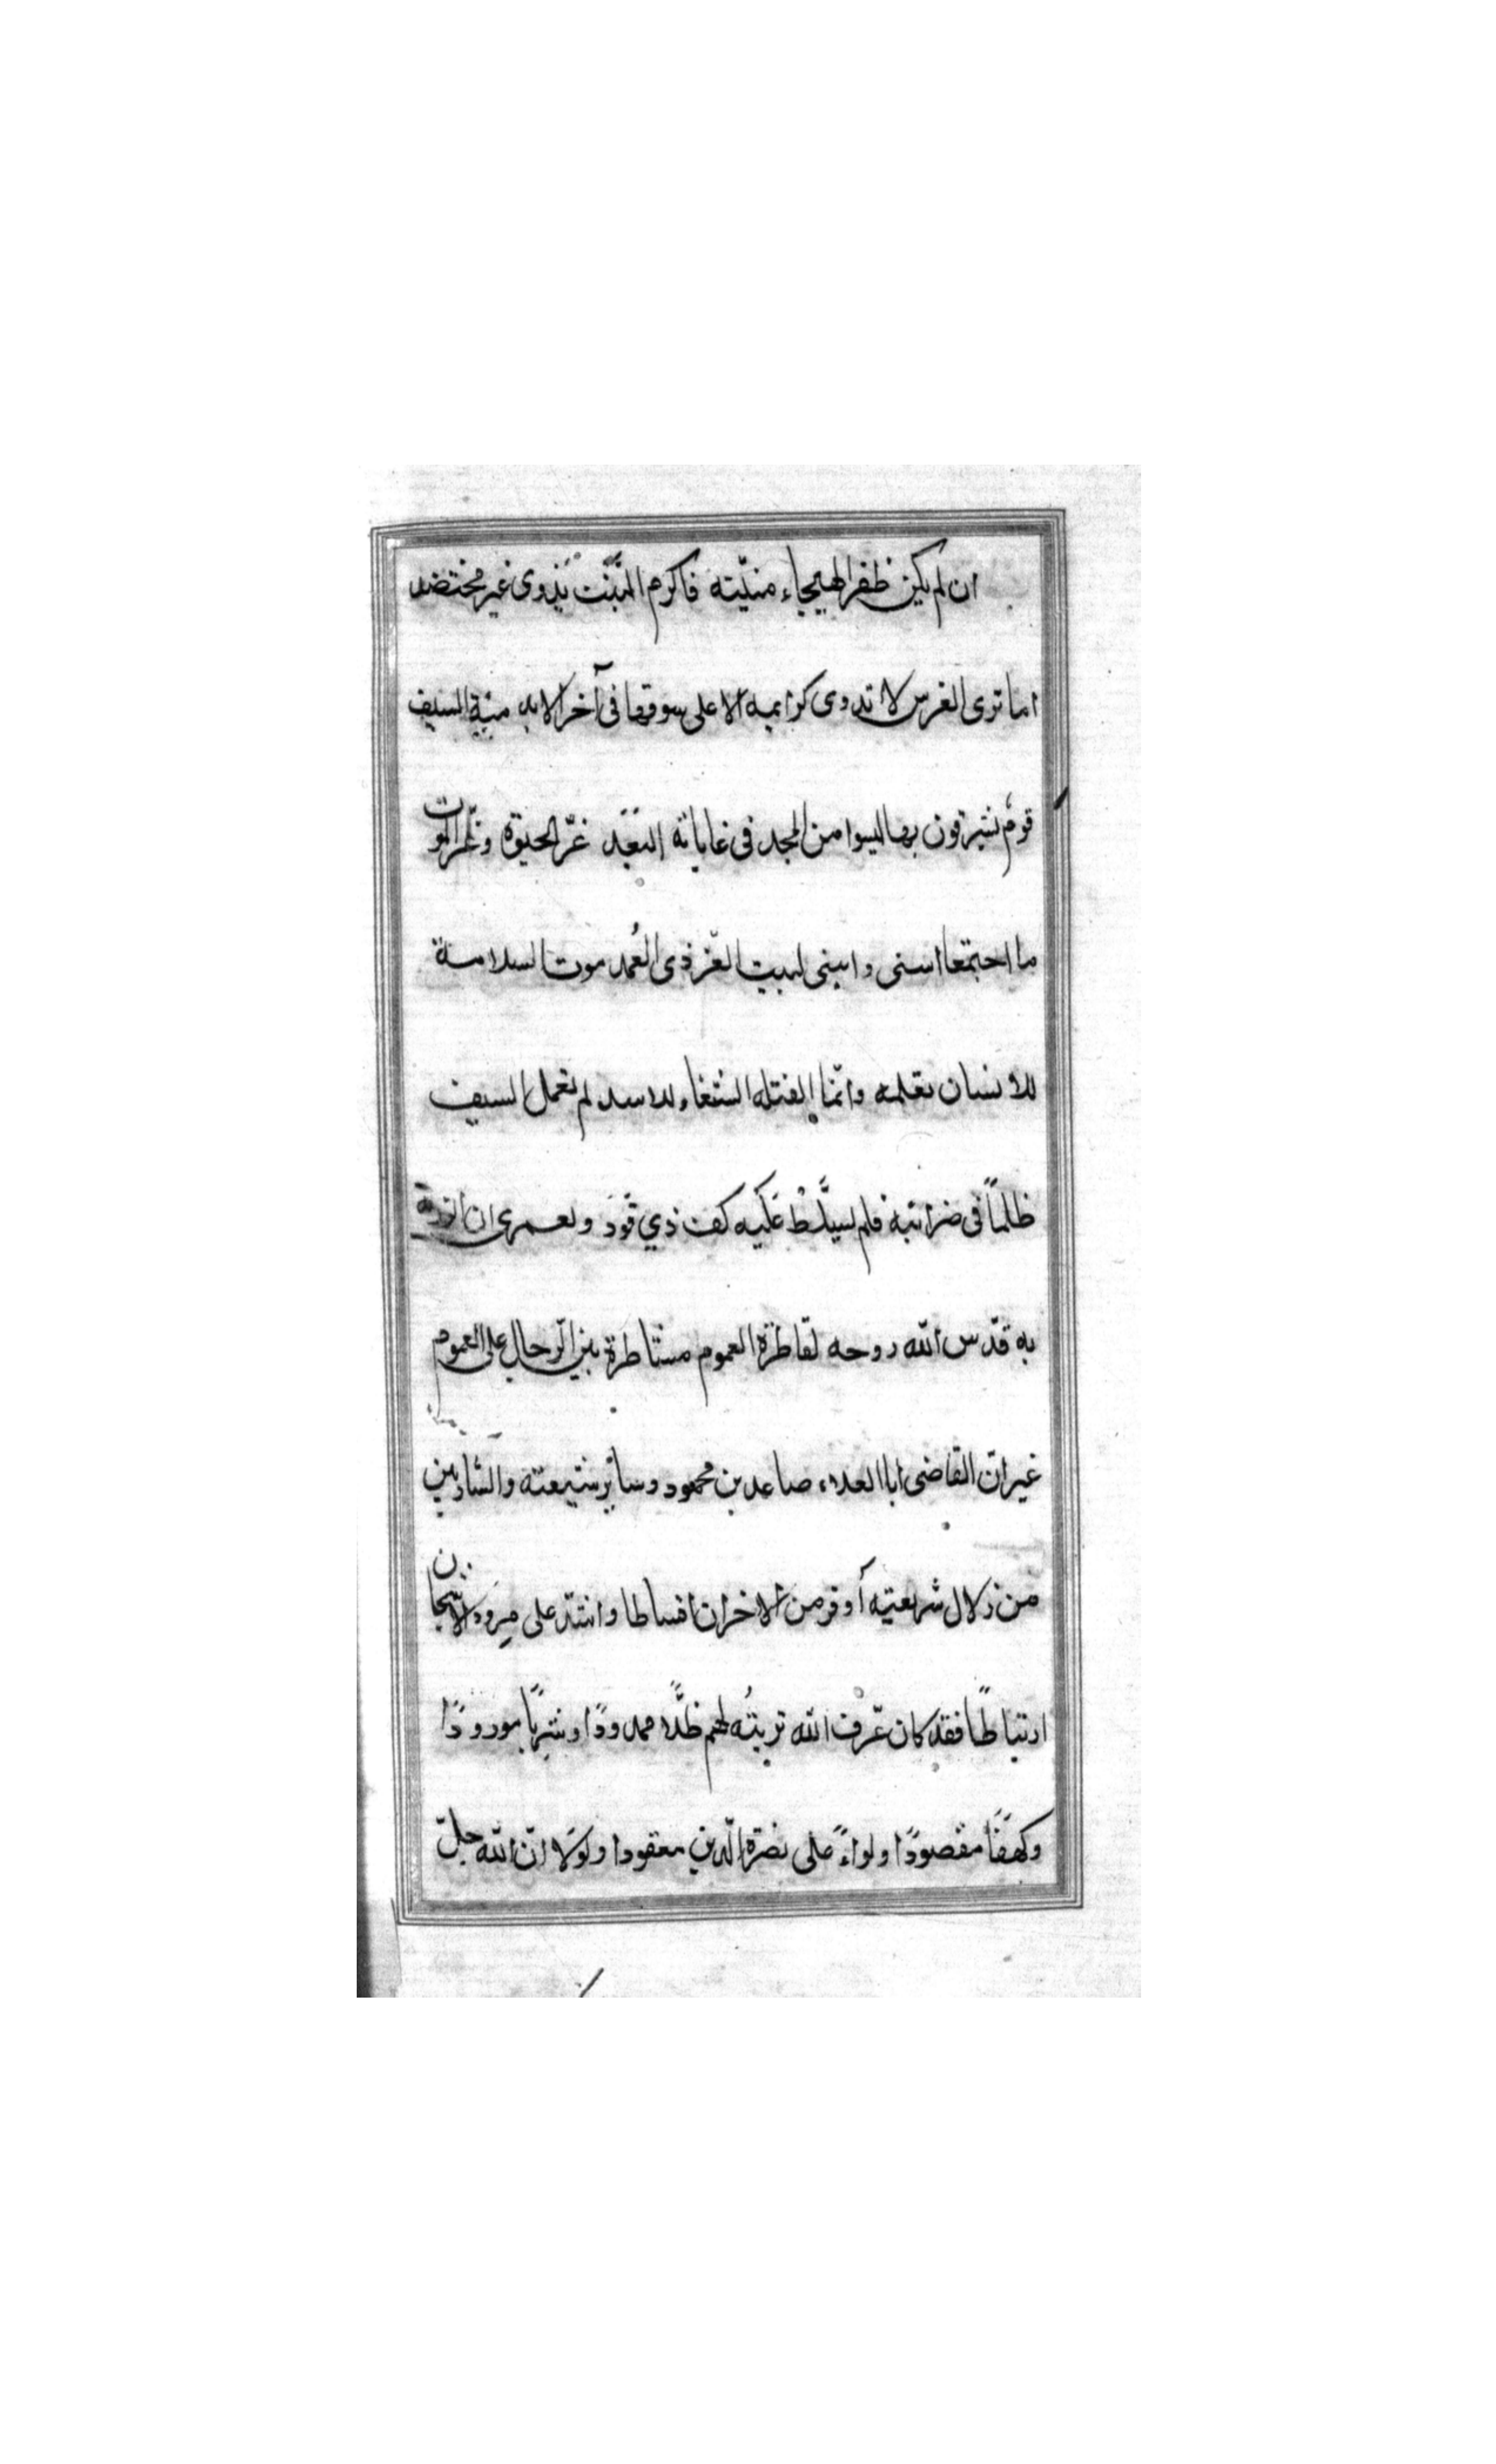 ان لم يكن ظفر الهيجاء منيّته فاكرم النّبت يَذوى غير مختضد
اما ترى الغرس لا تذوى كرايمه الا على سوقها فى آخر الابد منية السيف
قوم يشرفون بها ليسوا من المجد فى غاياته البَعَد عزّ الحيوة وعزّ الموت
ما اجتمعا اسنى وابنى لبيت العزّ ذى العُمد موت السلامة
للانسان نعلمه وانّما القتلة الشنعاء للاسد لم يعمل السيف
ظلماً فى ضرائبه فلم يسلَّطْ عَليه كف ذي قَوَد ولعمرى ان الرزية
به قدّس الله روحه لقاطرة العموم مشاطرة بين الرجال على العموم
غير انّ القاضى ابا العلاء صاعد بن محمود وساير شيعته والشاربين
من زلال شريعته أوفر من الاحزان اقساطا واشدّ على مرود الاشجان
ارتباطًا فقد كان عرّف الله تربتُه لهم ظلًّا ممدودًا وشِربًا مورودًا
وكهفًا مقصودًا ولواءً على نصرة الدّين معقودا ولَولا انّ الله جلّ